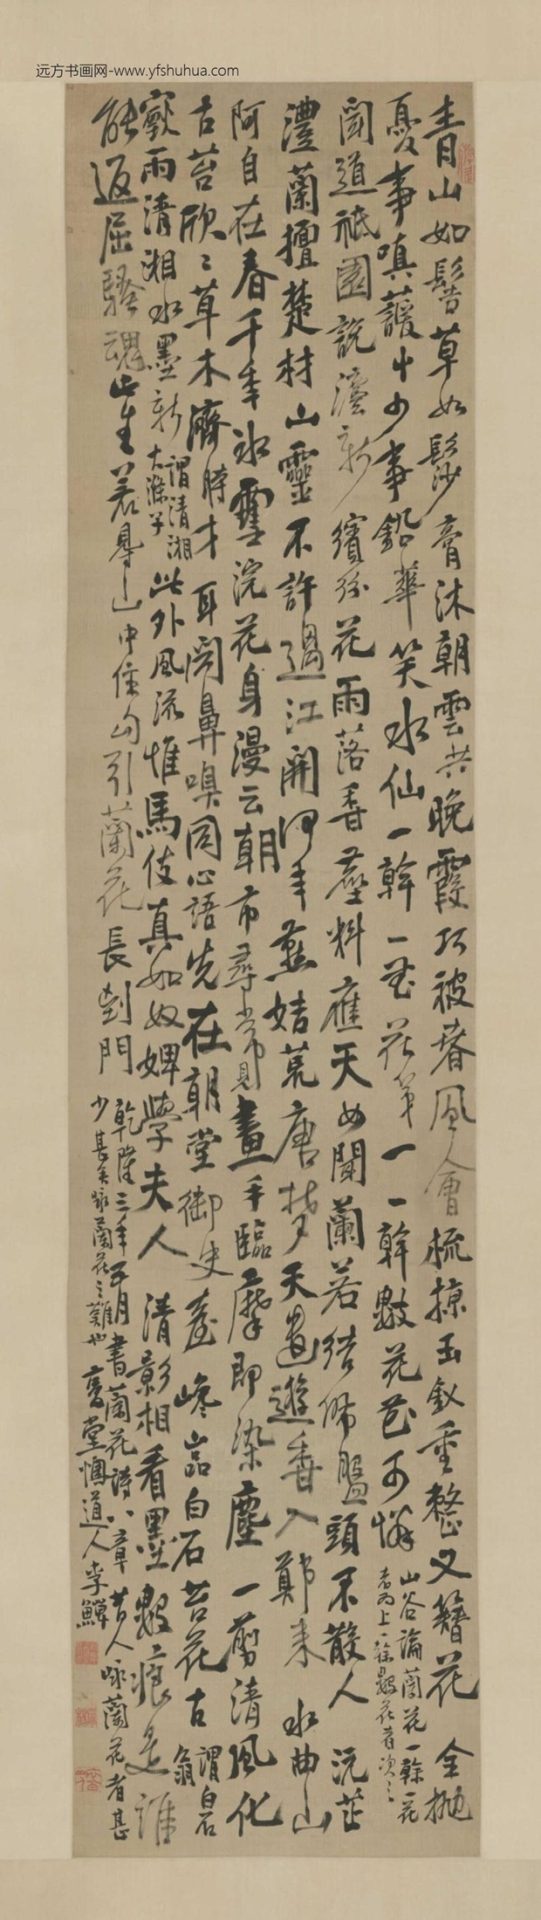 远方书画网-www.yfshuhua.com
青山如髻草如鬆膏沐朝雲共晚霞巧被春風人會梳掠玉釵重整又簪花 全拋
憂事嗔 中少事鉛華笑水仙一幹一花花第一一幹數花花可憐
山谷論蘭花一幹一花
者為上一幹數花者次之
聞道祗園說 新繽紛花雨落香塵料應天女聞蘭若結佛盤頭不散人 沅芷
澧蘭擅楚材山靈不許過江開何年燕姞荒唐夢天遣遊香入鄭來 水曲山
阿自在春千年冰雪浣花身漫云朝市尋常見畫手臨摩即染塵 一剪清風化
古苔欣欣草木濟時才耳聞鼻嗅同心語先在朝堂御史臺 巉巖白石苔花古
謂白石翁
寂雨清湘水墨新
謂清湘大滌子
此外風流惟馬伎真如奴婢學夫人 清影相看墨數痕是誰
能返屈騷魂 若尋山中住勾引蘭花長到門
乾隆三年五月書蘭花詩八章昔人咏蘭花者甚
少甚矣咏蘭花之難也 懊道人李鱓